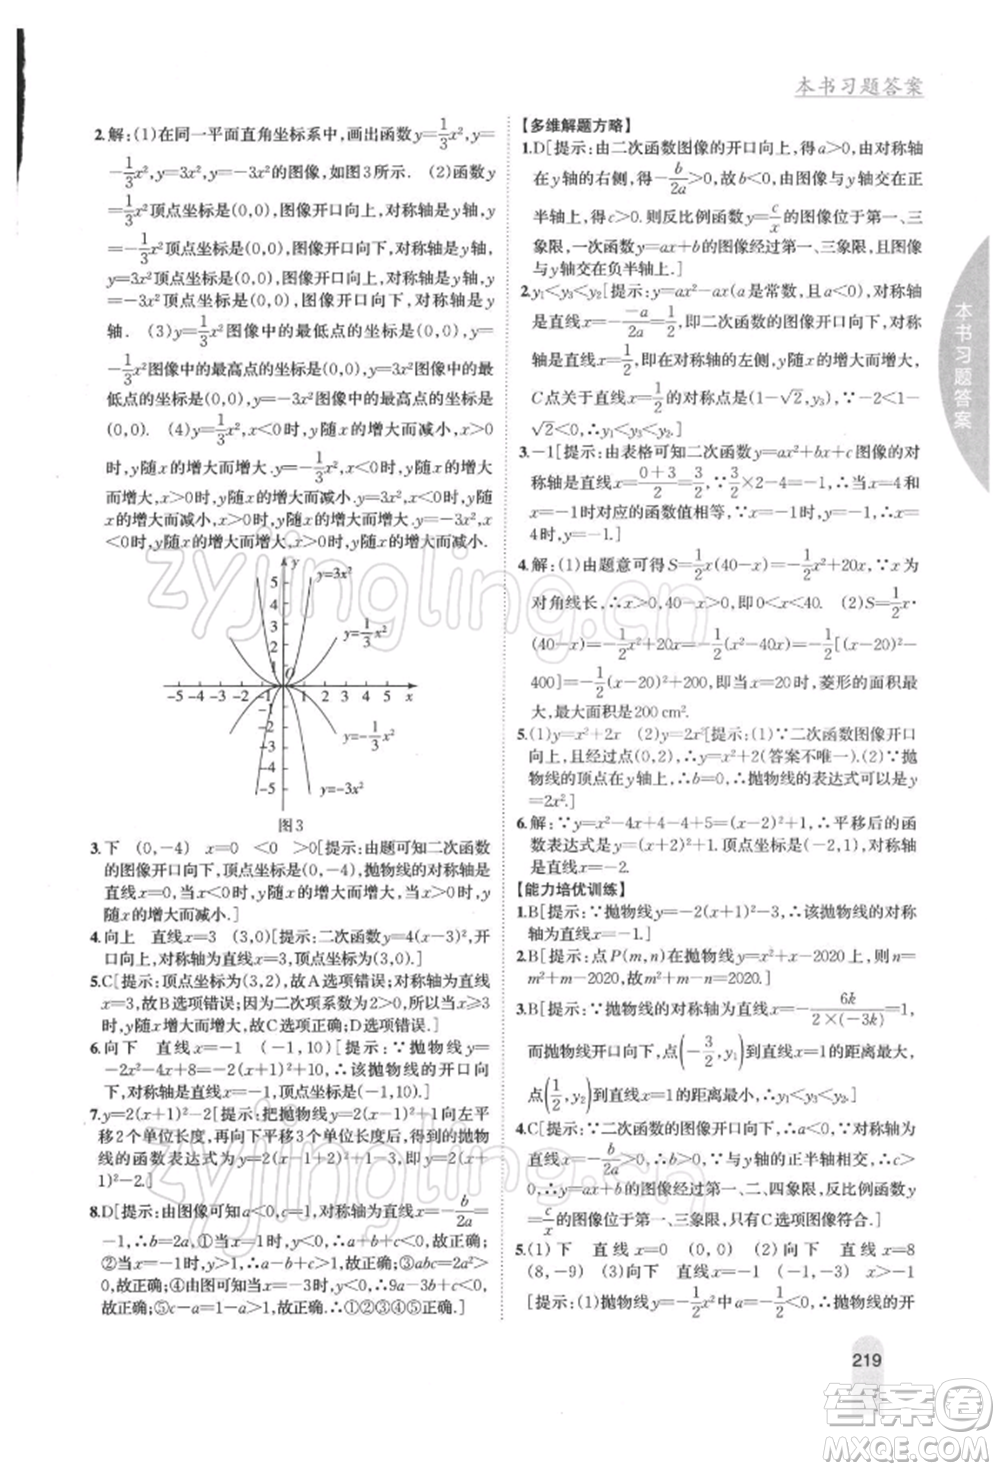 本书习题答案
2.解:(1)在同一平面直角坐标系中,画出函数y=1/3x²,y=
-1/3x²,y=3x²,y=-3x²的图像,如图3所示. (2)函数y
=1/3x²顶点坐标是(0,0),图像开口向上,对称轴是y轴,y=
-1/3x²顶点坐标是(0,0),图像开口向下,对称轴是y轴,
y=3x²顶点坐标是(0,0),图像开口向上,对称轴是y轴,
y=-3x²顶点坐标是(0,0),图像开口向下,对称轴是y
轴. (3)y=1/3x²图像中的最低点的坐标是(0,0),y=
-1/3x²图像中的最高点的坐标是(0,0),y=3x²图像中的最
低点的坐标是(0,0),y=-3x²图像中的最高点的坐标是
(0,0). (4)y=1/3x²,x<0时,y随x的增大而减小,x>0
时,y随x的增大而增大.y=-1/3x²,x<0时,y随x的增大而
增大,x>0时,y随x的增大而减小.y=3x²,x<0时,y随x的
增大而减小,x>0时,y随x的增大而增大.y=-3x²,x
<0时,y随x的增大而增大,x>0时,y随x的增大而减小.
y
5
4
3
2
1
y=3x²
y=1/3x²
O
-5 -4 -3 -2 -1 1 2 3 4 5 x
-1
-2
-3
-4
-5
y=-1/3x²
y=-3x²
图3
3.下 (0,-4) x=0 <0 >0[提示:由题可知二次函数
的图像开口向下,顶点坐标是(0,-4),抛物线的对称轴
是直线x=0,当x<0时,y随x的增大而增大,当x>0时,
y随x的增大而减小.]
4.向上 直线x=3 (3,0)[提示:二次函数y=4(x-3)²,开
口向上,对称轴为直线x=3,顶点坐标为(3,0).]
5.C[提示:顶点坐标为(3,2),故A选项错误;对称轴为x
=3,故B选项错误;因为二次项系数为2>0,所以当x≥3
时,y随x的增大而增大,故C选项正确;D选项错误.]
6.向下 直线x=-1 (-1,10)[提示:∵抛物线y=
-2x²-4x+8=-2(x+1)²+10,∴该抛物线的开口向
下,对称轴为直线x=-1,顶点坐标为(-1,10).]
7.y=2(x+1)²-2[提示:把抛物线y=2(x-1)²向左平
移2个单位长度,再向下平移3个单位长度后,得到的抛物
线的函数表达式为y=2(x-1+2)²+1-3,即y=2(x+
1)²-2.]
8.D[提示:由图像可知a<0,c=1,对称轴为直线x=-b/2a
=-1,∴b=2a,①∵当x=1时,y<0,∴a+b+c<0,故正确;
②当x=-1时,y>1,∴a-b+c>1,故正确;③abc=2a²<0,
故正确;④由图可知当x=-3时,y<0,∴9a-3b+c<0,
故正确;⑤c-a=1-a>1,故正确.∴①②③④⑤正确.]
【多维解题方略】
1.D[提示:由二次函数图像的开口向上,得a>0,由对称轴
在y轴的右侧,得-b/2a>0,故b<0,由抛物线与y轴交在正
半轴上,得c>0.则反比例函数y=c/x的图像位于第一、三
象限,一次函数y=ax+b的图像经过第一、三象限,且图像
与y轴交在负半轴上.]
2.y₁<y₃<y₂[提示:∵y=ax²-ax(a是常数,a<0),∴对称轴
是直线x=-(-a)/2a=1/2,即二次函数的开口向下,对称
轴是直线x=1/2,即在对称轴的左侧,y随x的增大而增大,
C点关于直线x=1/2的对称点是(1-√2,y₃),∵-1<1-√2
<1/2,∴y₁<y₃<y₂.]
3.-1[提示:由表格可知二次函数y=ax²+bx+c图像的对
称轴是直线x=(0+3)/2=3/2,∵3/2×2-4=-1,∴当x=4与x
=-1时对应的函数值相等,∵x=-1时,y=-1,∴x=
4时,y=-1.]
4.解:(1)由题意可得S=1/2x(40-x)=-1/2x²+20x,∵x
为对角线长,∴x>0,40-x>0,即0<x<40. (2)S=1/2x·
(40-x)=-1/2x²+20x=-1/2(x²-40x)=-1/2[(x-20)²-
400]=-1/2(x-20)²+200,即当x=20时,菱形的面积最
大,最大面积是200 cm².
5.(1)y=x²+2x (2)y=2x²[提示:(1)∵二次函数图像开口
向上,且经过点(0,2),∴y=x²+2(答案不唯一).(2)∵抛
物线的顶点在y轴上,∴m-2=0,∴抛物线的表达式可以为
y=2x².]
6.解:∵y=x²-4x+4-4+5=(x-2)²+1,∴平移后的函
数表达式是y=(x+2)²-1,顶点坐标是(-2,-1),对称轴
是直线x=-2.
【能力培优训练】
1.B[提示:∵抛物线y=-2(x+1)²-3,∴抛物线的对称
轴为直线x=-1.]
2.B[提示:∵点P(m,n)在抛物线y=x²+x-2020上,∴n=
m²+m-2020,∴m²+m-n=2020.]
3.B[提示:抛物线的对称轴为直线x=-6k/(2×(-3k))=1,
而抛物线开口向下,点(-3/2,y₁)到直线x=1的距离最大,
点(1/2,y₂)到直线x=1的距离最小,∴y₁<y₃<y₂.]
4.C[提示:∵二次函数的图像开口向下,∴a<0,∵对称轴为直
线x=-b/2a<0,∴b<0,∵与y轴的正半轴相交,∴c>0,
∴y=ax+b的图像经过第一、二、四象限,反比例函数y
=c/x的图像位于第一、三象限,只有C选项图像符合.]
5.(1)下 直线x=0 (0,0) (2)向下 直线x=8
(8,-9) (3)向下 直线x=-1 (-1,2) x>-1
[提示:(1)抛物线y=-1/2x²中a=-1/2<0,∴抛物线的开
本书习题答案
219
zyjingling.cn
zyjingling.cn
答案圈
MXQE.COM